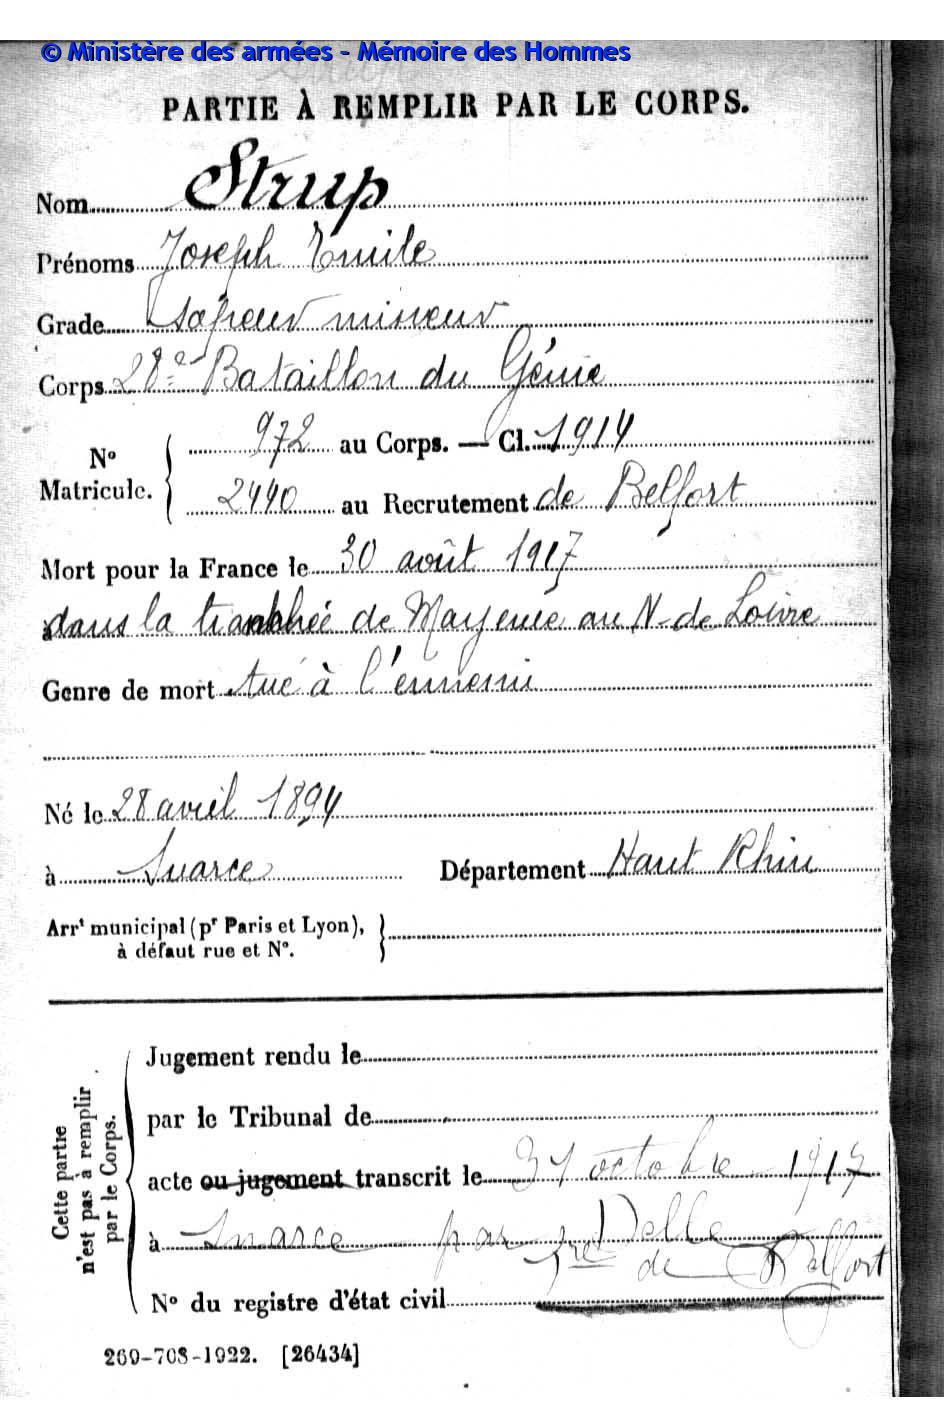 © Ministère des armées - Mémoire des Hommes
PARTIE À REMPLIR PAR LE CORPS.
Nom Strup
Prénoms Joseph Emile
Grade sapeur mineur
Corps 28e Bataillon du Génie
N° Matricule. 972 au Corps. — Cl. 1914
2440 au Recrutement de Belfort
Mort pour la France le 30 août 1917
dans la tranchée de Mayenne au N. de Loivre
Genre de mort tué à l'ennemi
Né le 28 avril 1894
à Suarce Département Haut Rhin
Arrt municipal (pr Paris et Lyon),
à défaut rue et N°.
Cette partie n'est pas à remplir par le Corps.
Jugement rendu le
par le Tribunal de
acte ou jugement transcrit le 31 octobre 1917
à Suarce par Delle
Tre de Belfort
N° du registre d'état civil
269-708-1922. [26434]